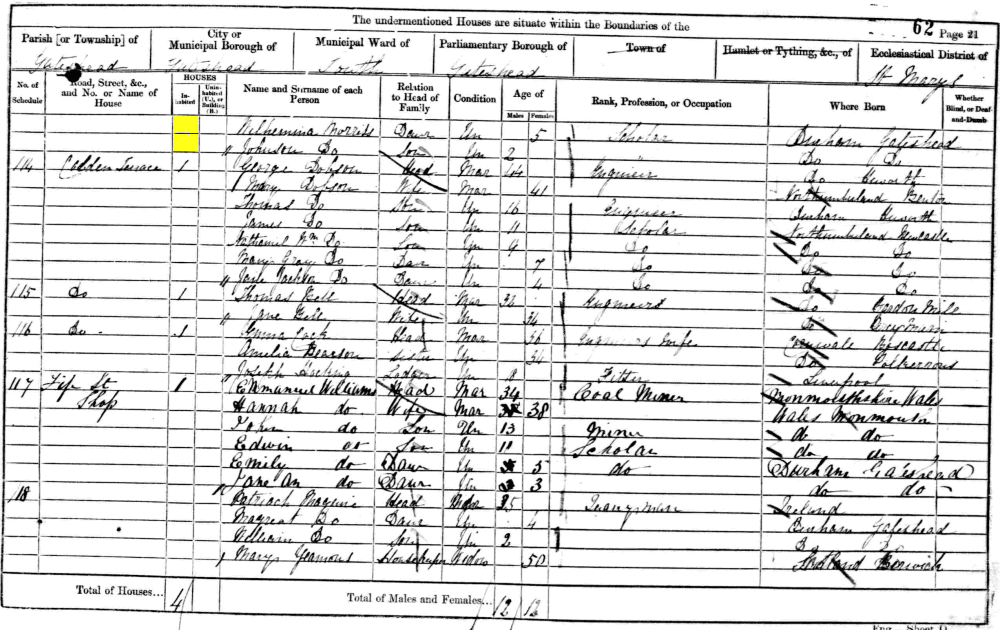 The undermentioned Houses are situate within the Boundaries of the
62 Page 21
Parish [or Township] of
City or Municipal Borough of
Municipal Ward of
Parliamentary Borough of
Town of
Hamlet or Tything, &c., of
Ecclesiastical District of
Gateshead Gateshead South Gateshead St Marys
No. of Schedule
Road, Street, &c., and No. or Name of House
HOUSES
In-habited
Unin-habited (U.), or Building (B.)
Name and Surname of each Person
Relation to Head of Family
Condition
Age of
Males Females
Rank, Profession, or Occupation
Where Born
Whether Blind, or Deaf-and-Dumb
Daur Un 5 Scholar Durham Gateshead
Johnson Do Son Un 2 Do Do
114 Terrace 1 George Dobson Head Mar 44 Engineer Do Heworth
Mary Dobson Wife Mar 41 Northumberland Benton
Thomas Do Son Un 16 Engineer Durham Heworth
James Do Son Un 11 Scholar Northumberland Newcastle
Nathaniel Wm Do Son Un 9 Do Do Do
Mary Gray Do Daur Un 7 Do Do Do
Jane Jackson Do Daur Un 4 Do Do Do
115 Do 1 Thomas Bell Head Mar Engineer Do
Jane Bell Wife Un 34 Do
116 Do 1 Emma Head Mar 36 Engineers Wife Cornwall Boscastle
Amelia Pearson Sister Un 34 Do
Joseph Lodger Un Fitter Liverpool
117 Pipe St Shop 1 Emmanuel Williams Head Mar 34 Coal Miner Monmouthshire Wales
Hannah do Wife Mar 38 Wales Monmouth
John do Son Un 13 Miner do do
Edwin do Son Un 11 Scholar do do
Emily do Daur Un 5 do Durham Gateshead
Jane An do Daur Un 3 do do
118 Head 35 Quarryman Ireland
Do Daur Un 4 Durham Gateshead
William Do Son Un 2 Do
Mary Housekeeper Widow 50 Scotland Berwick
Total of Houses... 4
Total of Males and Females... 12 12
Eng. Sheet D.